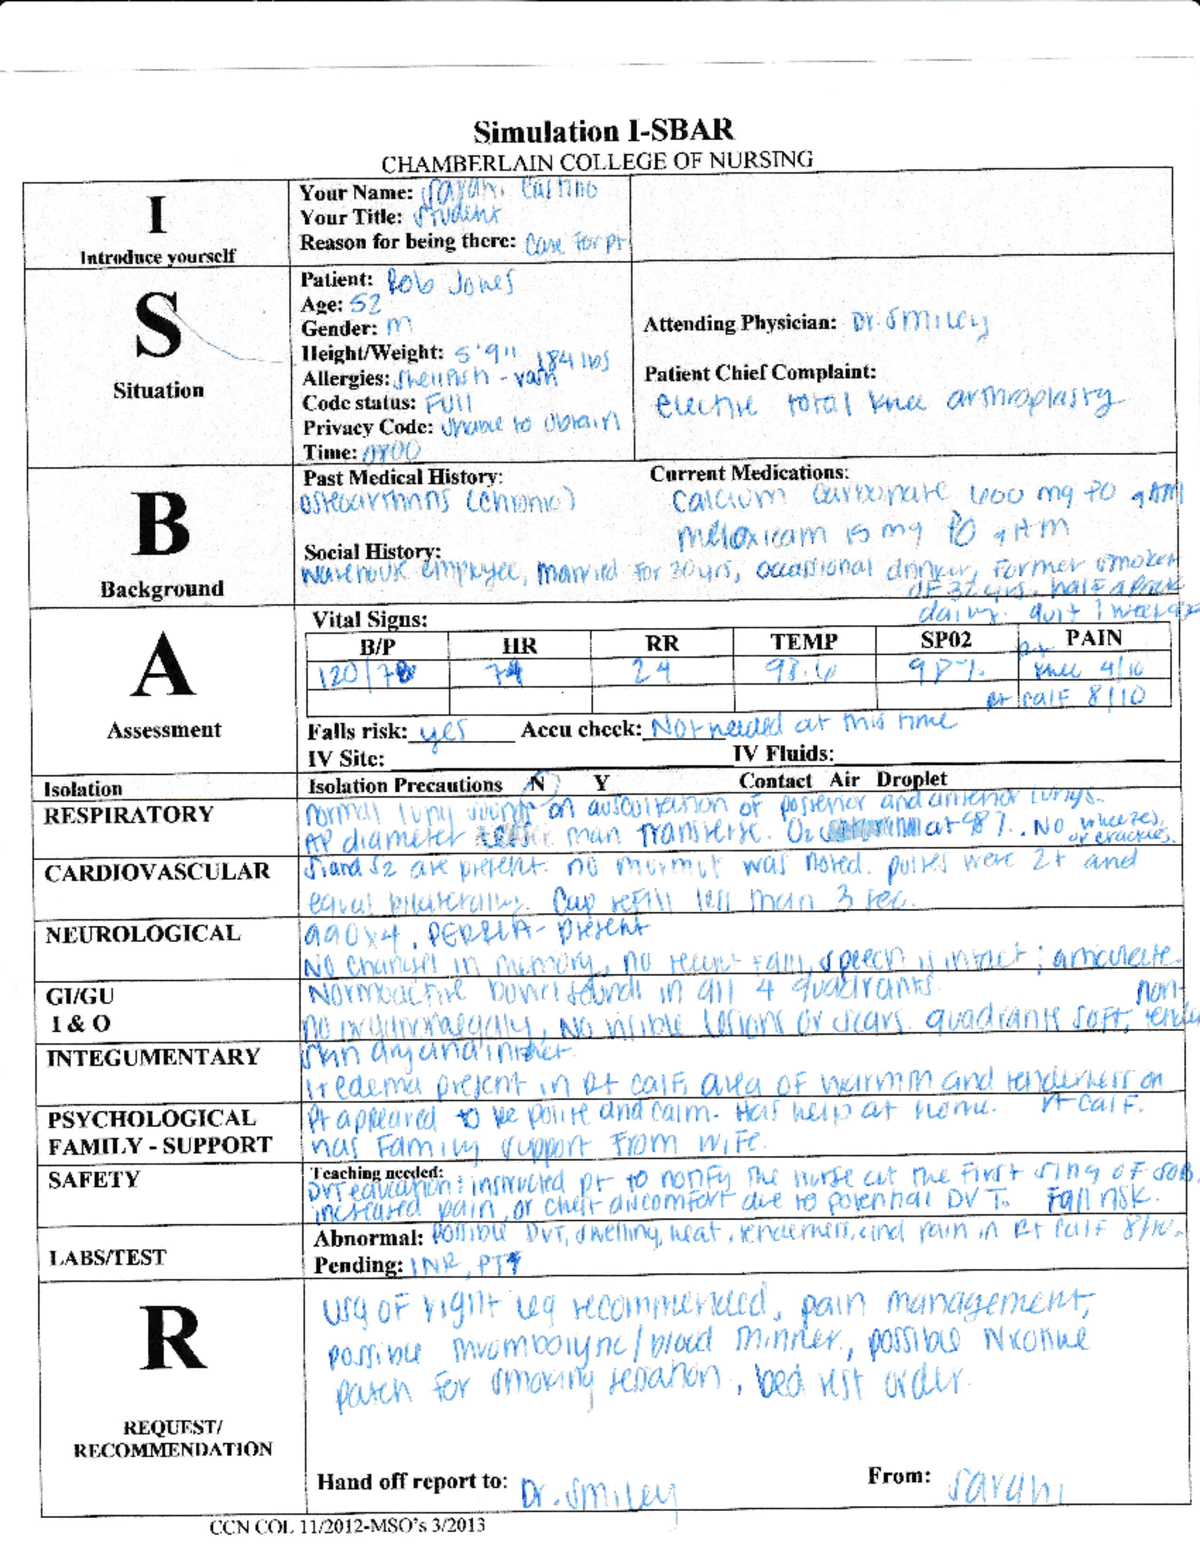 Simulation I-SBAR
CHAMBERLAIN COLLEGE OF NURSING
I
Introduce yourself
Your Name: Sarahi
Your Title: Student
Reason for being there: Care for pt
S
Situation
Patient: Rob Jones
Age: 52
Gender: M
Height/Weight: 5'9" 184 lbs
Allergies: Shellfish - rash
Code status: Full
Privacy Code: Unable to obtain
Time: 0800
Attending Physician: Dr. Smiley
Patient Chief Complaint:
elective total knee arthroplasty
B
Background
Past Medical History:
osteoarthritis (chronic)
Current Medications:
Calcium Carbonate 600 mg PO qAM
Meloxicam 15 mg PO qAM
Social History:
Warehouse employee, married for 30yrs, occassional drinker, former smoker
of 32 yrs. half a pack
daily. quit 1 week
A
Assessment
Vital Signs:
B/P HR RR TEMP SP02 PAIN
120/78 74 24 98.6 98% Rt knee 4/10
Rt calf 8/10
Falls risk: yes Accu check: Not needed at this time
IV Site: IV Fluids:
Isolation Isolation Precautions N Y Contact Air Droplet
RESPIRATORY
normal lung sounds on auscultation of posterior and anterior lungs.
AP diameter lesser than transverse. O2 at 98%. No wheezes, or crackles.
CARDIOVASCULAR
S1 and S2 are present. no murmur was noted. pulses were 2+ and
equal bilaterally. Cap refill less than 3 sec.
NEUROLOGICAL
AAOx4, PERRLA - present
No changes in memory, no recent fall, speech is intact; articulate.
GI/GU
I & O
Normoactive bowel sounds in all 4 quadrants. non-
no organomegaly, No visible lesions or scars. quadrants soft, tender
INTEGUMENTARY
Skin dry and intact.
1+ edema present in Rt calf, area of warmth and tenderness on
Rt calf.
PSYCHOLOGICAL
FAMILY - SUPPORT
Pt appeared to be polite and calm. Has help at home.
has family support from wife.
SAFETY
Teaching needed:
DVT education: instructed pt to notify the nurse at the first sing of SOB,
increased pain, or chest discomfort due to potential DVT. Fall risk.
LABS/TEST
Abnormal: Possible DVT, swelling, heat, tenderness, and pain in Rt calf 8/10.
Pending: INR, PTT
R
REQUEST/
RECOMMENDATION
USG of right leg recommended, pain management,
possible thrombolytic/blood thinner, possible Nicotine
patch for smoking cessation, bed rest order.
Hand off report to: Dr. Smiley From: Sarahi
CCN COL 11/2012-MSO's 3/2013